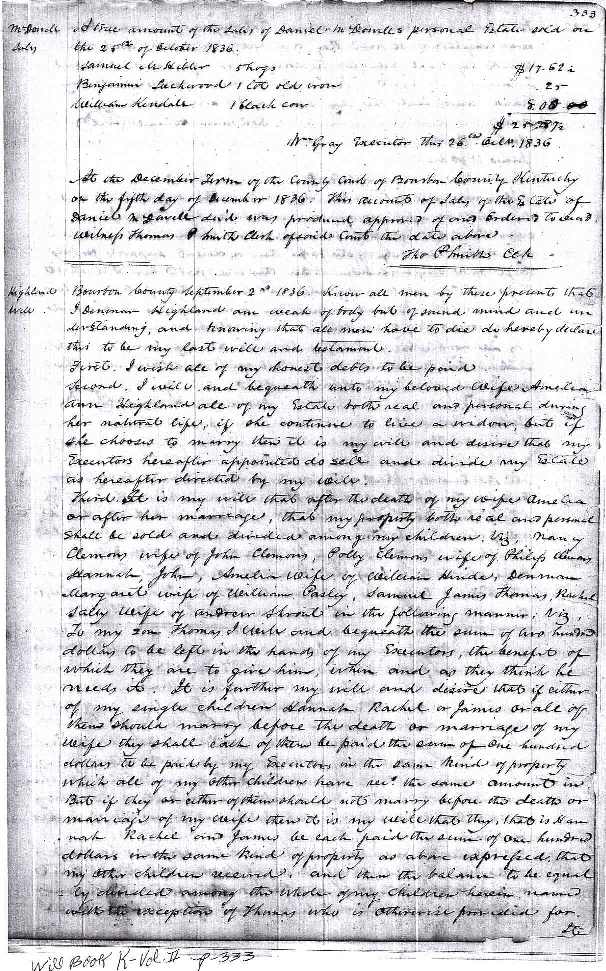 333
McDowell
Sales
A true amount of the Sales of Daniel McDowell's personal Estate sold on
the 25th of October 1836.
Samuel McKibler 5 hogs $17.62½
Benjamin Lockwood 1 lot old iron .25
William Kendale 1 black cow 8.00
$ 25.87½
Wm Gray Executor this 26th Octr, 1836
At the December Term of the County Court of Bourbon County Kentucky
on the fifth day of December 1836. This account of Sales of the Estate of
Daniel McDowell decd was produced approved of and Ordered to record
Witness Thomas P Smith Clerk of said Court the date above.
Tho P Smith Clk
Highland
Will
Bourbon County September 2nd 1836. Know all men by these presents that
I Denman Highland am weak of body but of sound mind and un
derstanding, and knowing that all men have to die do hereby declare
this to be my last will and testament.
First. I wish all of my honest debts to be paid
Second. I will and bequeath unto my beloved Wife Amelia
Ann Highland all of my Estate both real and personal during
her natural life, if she continue to live a widow, but if
she chooses to marry then it is my will and desire that my
Executors hereafter appointed do sell and divide my Estate
as hereafter directed by my will.
Third. It is my will that after the death of my wife Amelia
or after her marriage, that my property both real and personal
shall be sold and divided among my children, Viz, Nancy
Clemons wife of John Clemons, Polly Clemons wife of Philip Clemons
Hannah, John, Amelia Wife of William Hinds, Denman
Margaret wife of William Pasley, Samuel James Thomas, Rachel
Sally Wife of Andrew Shrout in the following manner, Viz,
To my son Thomas I Will and bequeath the sum of two hundred
dollars to be left in the hands of my Executors, the benefit of
which they are to give him, when and as they think he
needs it. It is further my will and desire that if either
of my single children Hannah Rachel or James or all of
them should marry before the death or marriage of my
Wife they shall each of them be paid the sum of One hundred
dollars to be paid by my Executors in the same kind of property
which all of my other children have recd the same amount in
But if they or either of them should not marry before the death or
marriage of my Wife then it is my will that they, that is Han
nah Rachel and James be each paid the sum of one hundred
dollars in the same kind of property as above expressed, that
my other children received, and then the balance to be equal
ly divided among the whole of my children herein named
with the exception of Thomas who is otherwise provided for.
Will Book K-Vol. II p-333